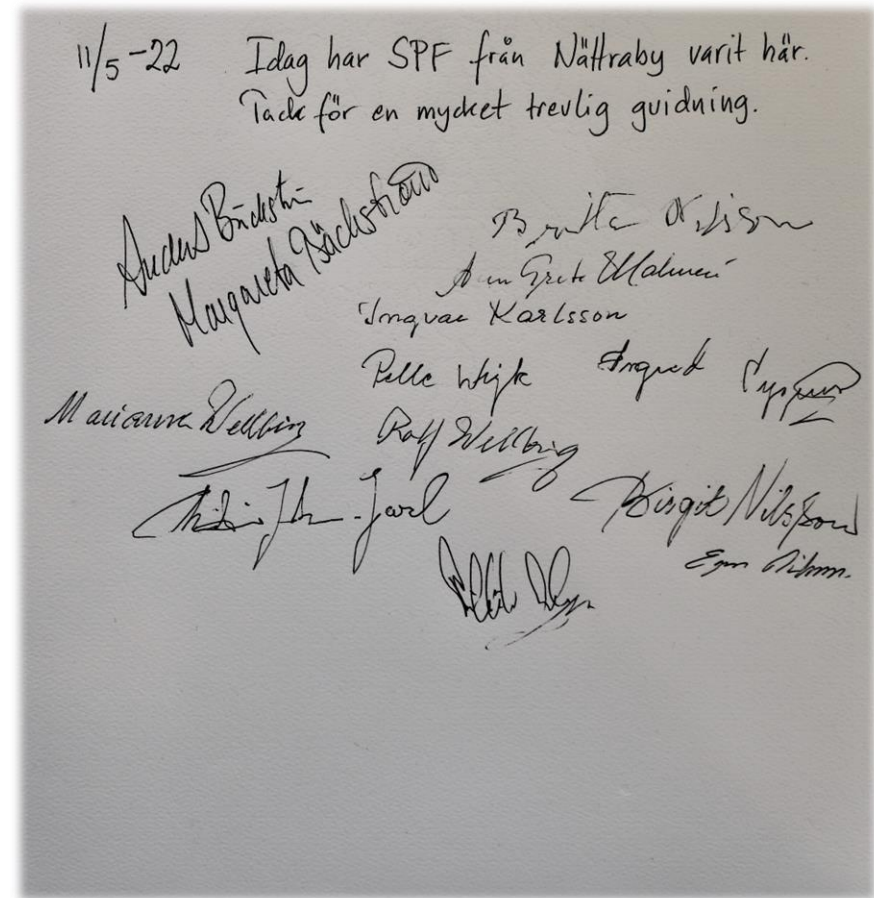 11/5-22 Idag har SPF från Nättraby varit här.
Tack för en mycket trevlig guidning.
Anders Bäckström
Margareta Bäckström
Britta Nilsson
Ann Grete
Ingvar Karlsson
Pelle Wijk
Ingrid
Marianne Wellbing
Ralf Wellbing
Jarl
Birgit Nilsson